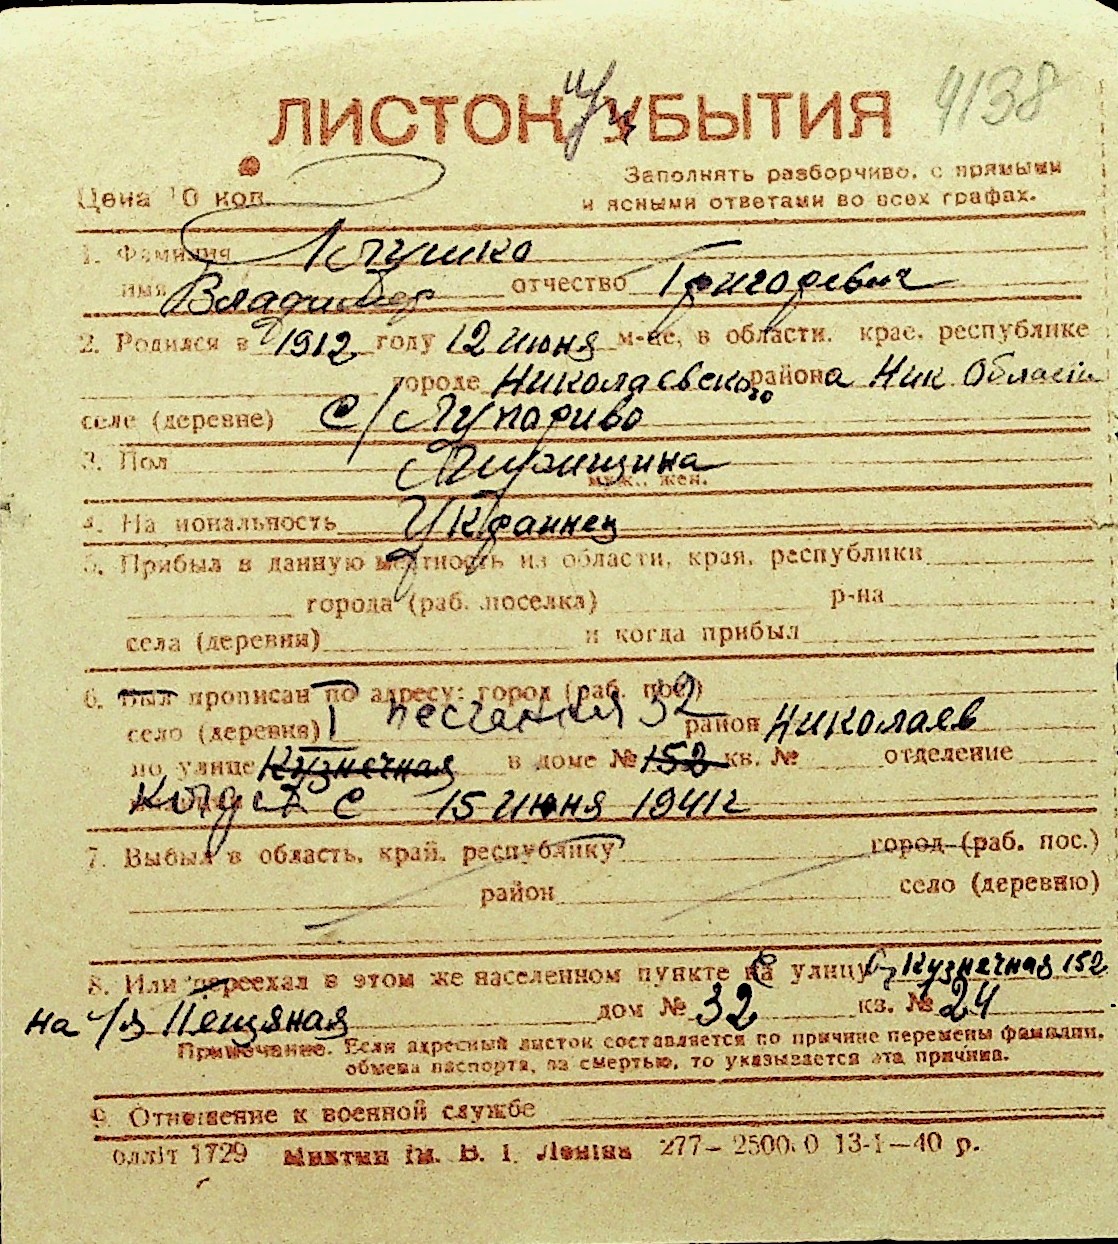 ЛИСТОК УБЫТИЯ 4138
Цена 10 коп.
Заполнять разборчиво, с прямыми
и ясными ответами во всех графах.
1. Фамилия
имя Владимир отчество Григоревич
2. Родился в 1912 году 12 июня м-це, в области, крае, республике
городе Николаевского района Ник Области
селе (деревне) с/ Лупариво
3. Пол Мущина
муж., жен.
4. Национальность Украинец
5. Прибыл в данную местность из области, края, республики
города (раб. поселка) р-на
села (деревни) и когда прибыл
6. Был прописан по адресу: город (раб. пос.)
село (деревня) I песчаная 32 район Николаев
по улице Кузнечная в доме № 152 кв. № отделение
Когда с 15 июня 1941 г
7. Выбыл в область, край, республику город (раб. пос.)
район село (деревню)
8. Или переехал в этом же населенном пункте на улицу Кузнечная 152
на Пещяная дом № 32 кв. № 24
Примечание. Если адресный листок составляется по причине перемены фамилии,
обмена паспорта, за смертью, то указывается эта причина.
9. Отношение к военной службе
оплліт 1729 ім. В. І. Леніна 277— 2500.0 13-1—40 р.